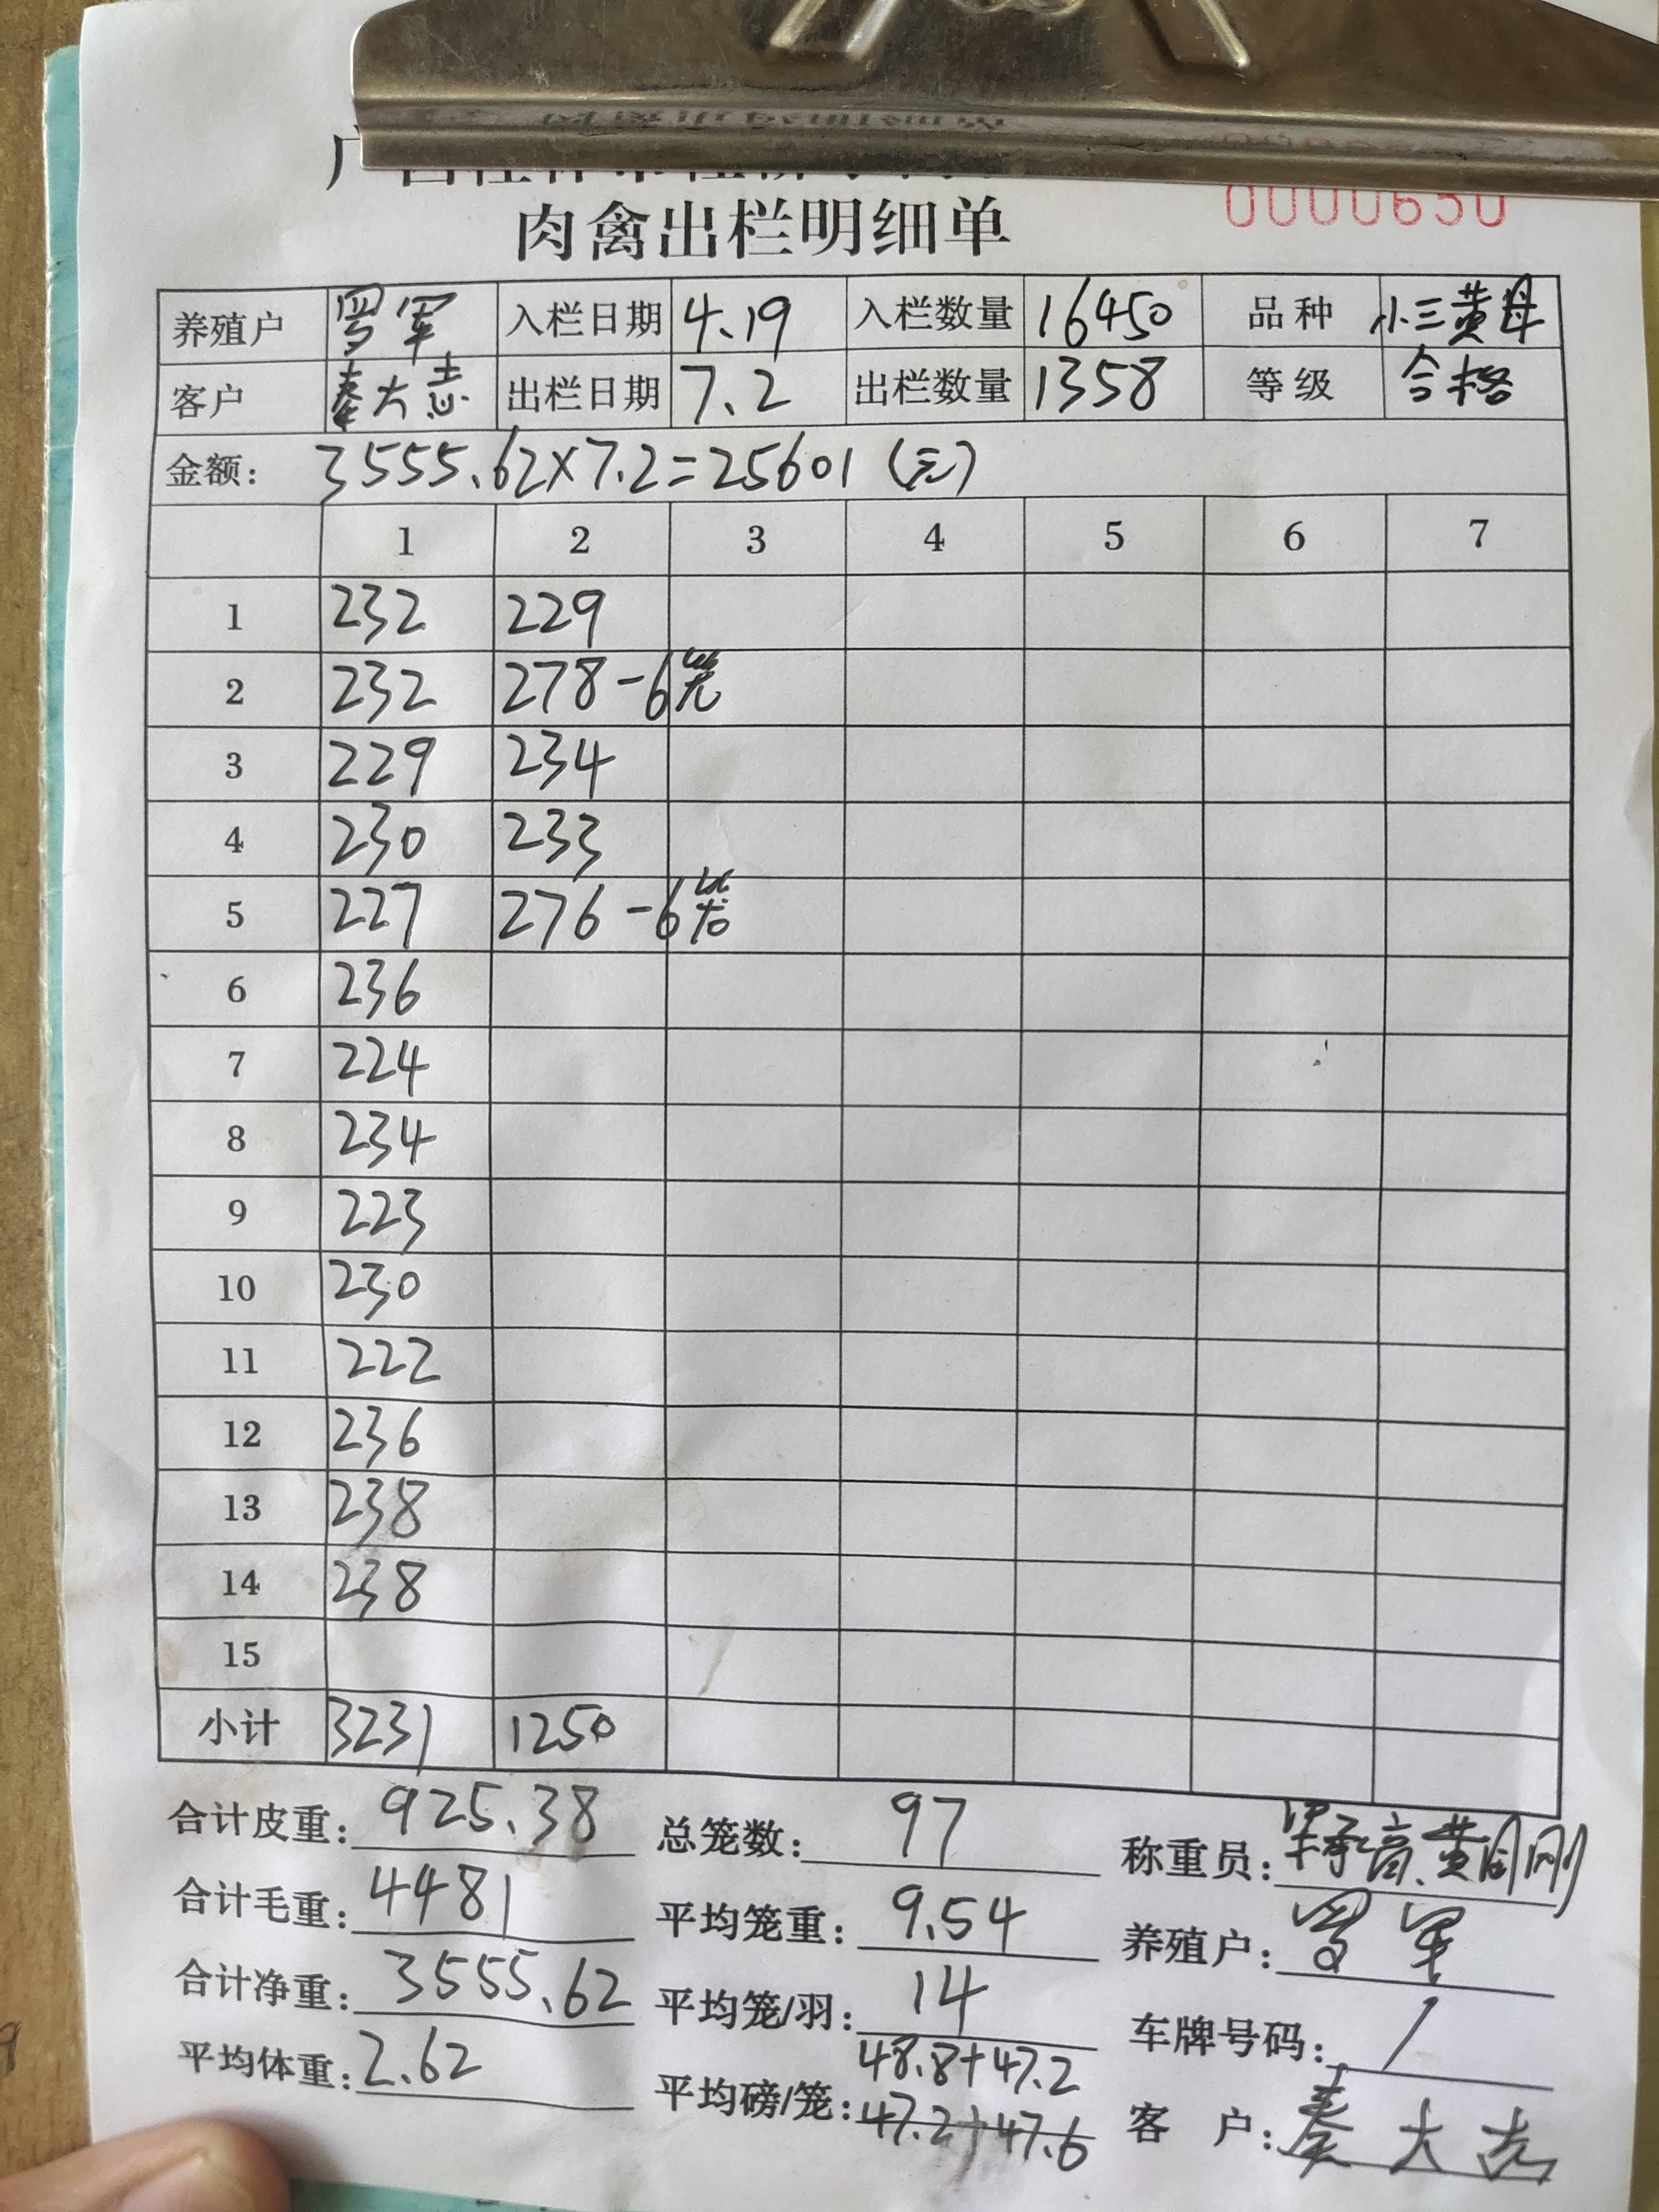 0000650
肉禽出栏明细单
养殖户 罗军 入栏日期 4.19 入栏数量 16450 品种 小三黄母
客户 秦大志 出栏日期 7.2 出栏数量 1358 等级 合格
金额: 3555.62×7.2=25601(元)
1 2 3 4 5 6 7
1 232 229
2 232 278-6笼
3 229 234
4 230 233
5 227 276-6笼
6 236
7 224
8 234
9 223
10 230
11 222
12 236
13 238
14 238
15
小计 3231 1250
合计皮重: 925.38 总笼数: 97 称重员: 黄国刚
合计毛重: 4481 平均笼重: 9.54 养殖户: 罗军
合计净重: 3555.62 平均笼/羽: 14 车牌号码: /
平均体重: 2.62 平均磅/笼: 48.8+47.2
47.2+47.6 客户: 秦大志